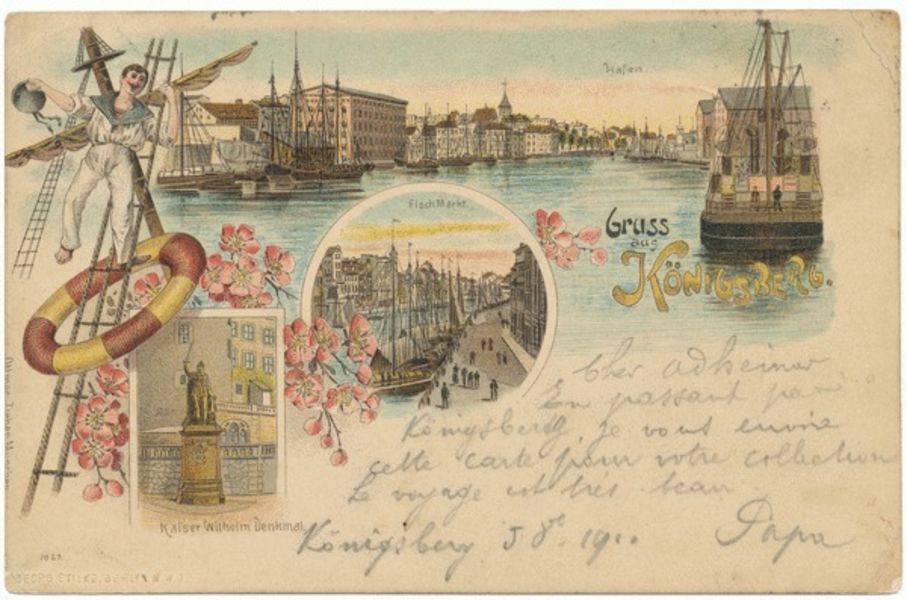 Hafen.
Fisch Markt.
Gruss
aus
Königsberg.
Cher Adheimar
En passant par
Königsberg je vous envoie
cette carte pour votre collection
Le voyage est très beau
Königsberg 5 8re 19
Papa
Kaiser Wilhelm Denkmal.
GEORG STILKE, BERLIN N.W.7.